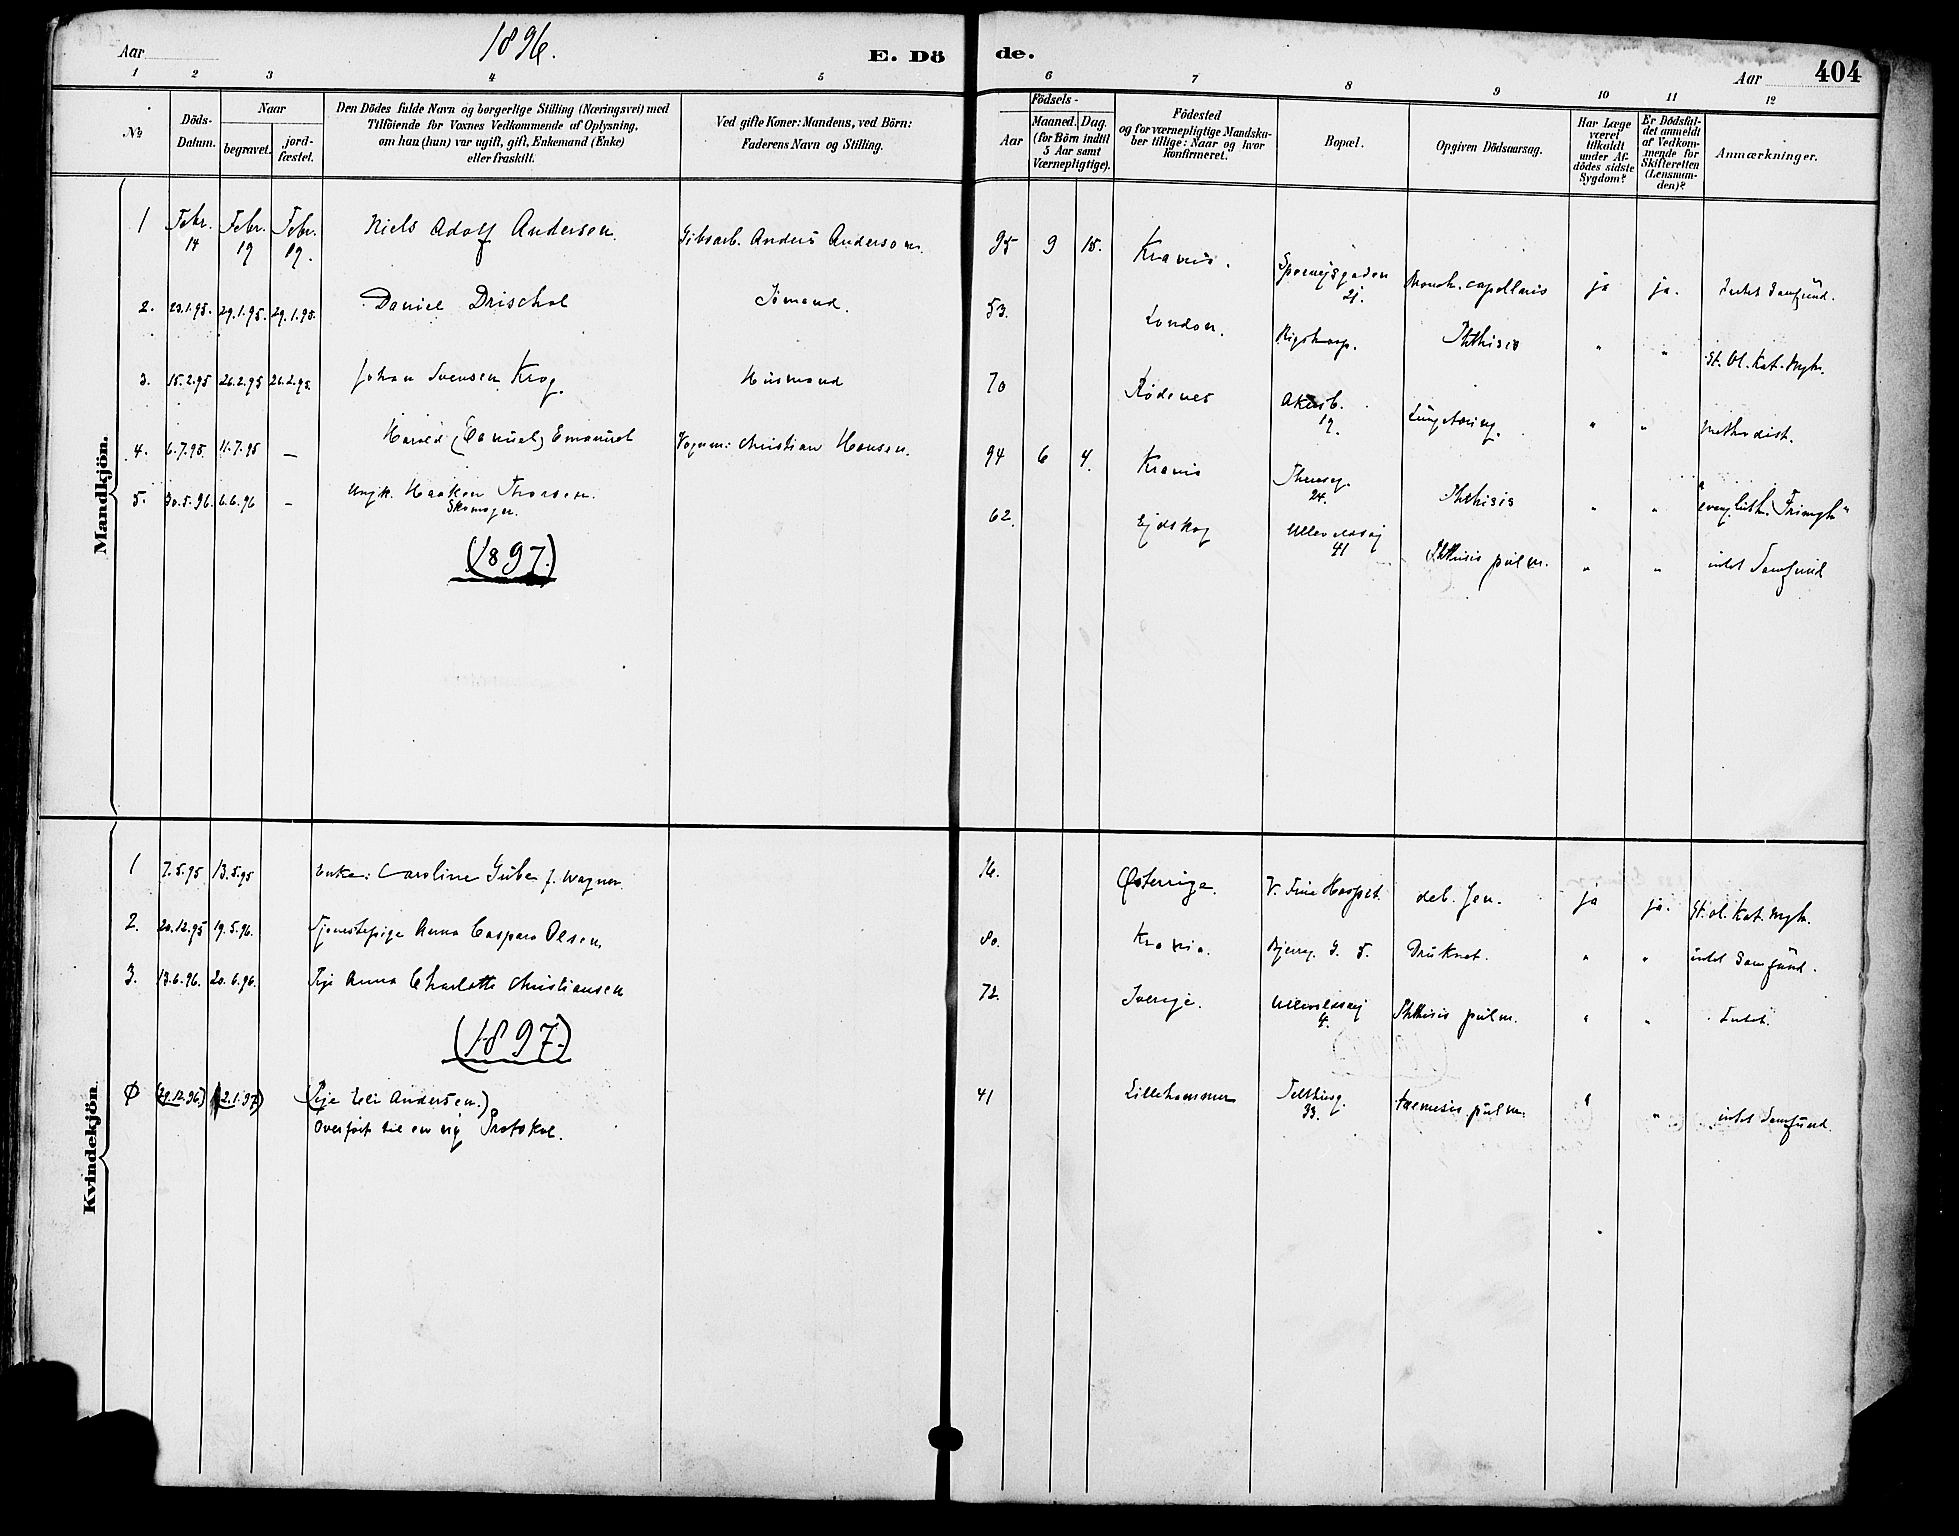 Aar 1896. E. Dö de. Aar 404
1 2 3 4 5 6 7 8 9 10 11 12
№
Döds-Datum.
Naar
begravet.
jord-fæstet.
Den Dödes fulde Navn og borgerlige Stilling (Næringsvei) med
Tilföiende for Voxnes Vedkommende af Oplysning,
om han (hun) var ugift, gift, Enkemand (Enke)
eller fraskilt.
Ved gifte Koner: Mandens, ved Börn:
Faderens Navn og Stilling.
Födsels-
Aar
Maaned. Dag.
(for Börn indtil
5 Aar samt
Værnepligtige).
Födested
og for værnepligtige Mandska-
ber tillige: Naar og hvor
konfirmeret.
Bopæl.
Opgiven Dödsaarsag.
Har Læge
været
tilkaldt
under Af-
dödes sidste
Sygdom?
Er Dödsfal-
det anmeldt
af Vedkom-
mende for
Skifteretten
(Lensman-
den)?
Anmærkninger.
Mandkjön.
1 Febr. 14 Febr. 19 Febr. 19. Niels Adolf Andersen. Anders Andersen. 95 9 15. Krania. 21. Bronch. capellaris ja ja. Intet Samfund.
2. 23.1.95. 29.1.95. 29.1.95. Daniel Drischol Sömand. 53. London. Rigshosp. Phthisis " " St. Ol. Kat. Mgh.
3. 15.2.95 26.2.95 26.2.95 Johan Svensen Krog. Husmand 70 Rødenes Akersb. 19. Lungetæring. " " Methodist.
4. 6.7.95. 11.7.95 — Harald (Samuel) Emanuel Vognm: Christian Hansen. 94 6 4. Krania Theresesg. 24. Phthisis " " evang. luth. Frimgh"
5. 30.5.96. 6.6.96 — Ungk. Haaken Thorsen. Skomager. 62. Ejdskog Ullevoldsvej 41 Phthisis pulm. " " intet Samfund
(1897.)
Kvindekjön
1 7.5.95 13.5.95 Enke: Caroline Gube f. Wagner 16. Østerrige. V. Frue Hospit. deb. sen. ja ja. St. ol. Kat. Mgh.
2. 20.12.95 19.5.96. Tjenestepige Anna Caspara Olsen 80. Krania. Bjerreg. G. 5. Druknet. " " intet Samfund.
3. 13.6.96. 20.6.96. Pige Anna Charlotte Christiansen 72. Sverige. Ullevoldsvej 4. Phthisis pulm. " " Intet.
(1897.)
Ø (29.12.96) (2.1.97) (Pige Eli Andersen.) 41 Lillehammer 33. pulm. " " intet Samfund.
Overført til en ny Protokol.